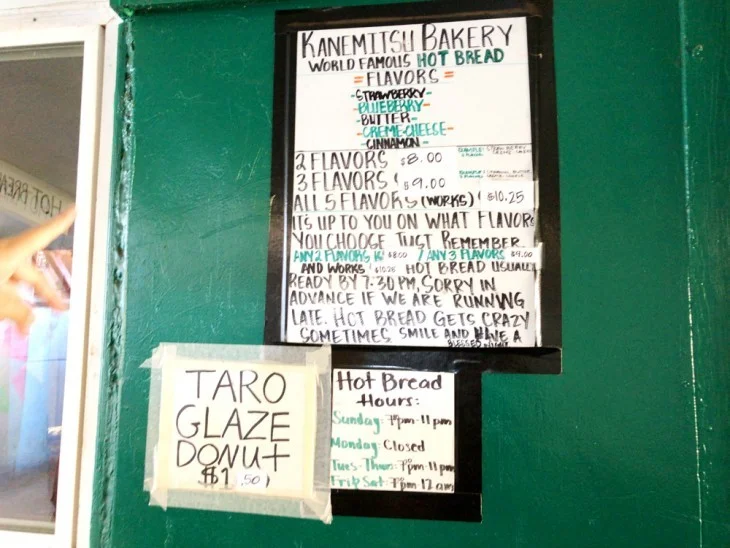 KANEMITSU BAKERY
WORLD FAMOUS HOT BREAD
= FLAVORS =
-STRAWBERRY-
-BLUEBERRY-
-BUTTER-
-CREME-CHEESE-
-CINNAMON-
2 FLAVORS $8.00
3 FLAVORS $9.00
ALL 5 FLAVORS (WORKS) $10.25
IT'S UP TO YOU ON WHAT FLAVORS
YOU CHOOSE JUST REMEMBER
ANY 2 FLAVORS IS $8.00 / ANY 3 FLAVORS $9.00
AND WORKS $10.25 HOT BREAD USUALLY
READY BY 7:30 PM, SORRY IN
ADVANCE IF WE ARE RUNNING
LATE. HOT BREAD GETS CRAZY
SOMETIMES SMILE AND HAVE A
BLESSED
TARO
GLAZE
DONUT
$1.50
Hot Bread
Hours:
Sunday: 7:30pm-11pm
Monday: Closed
Tues-Thurs: 7:30pm-11pm
Fri & Sat: 7:30pm-12am
HOT BREAD